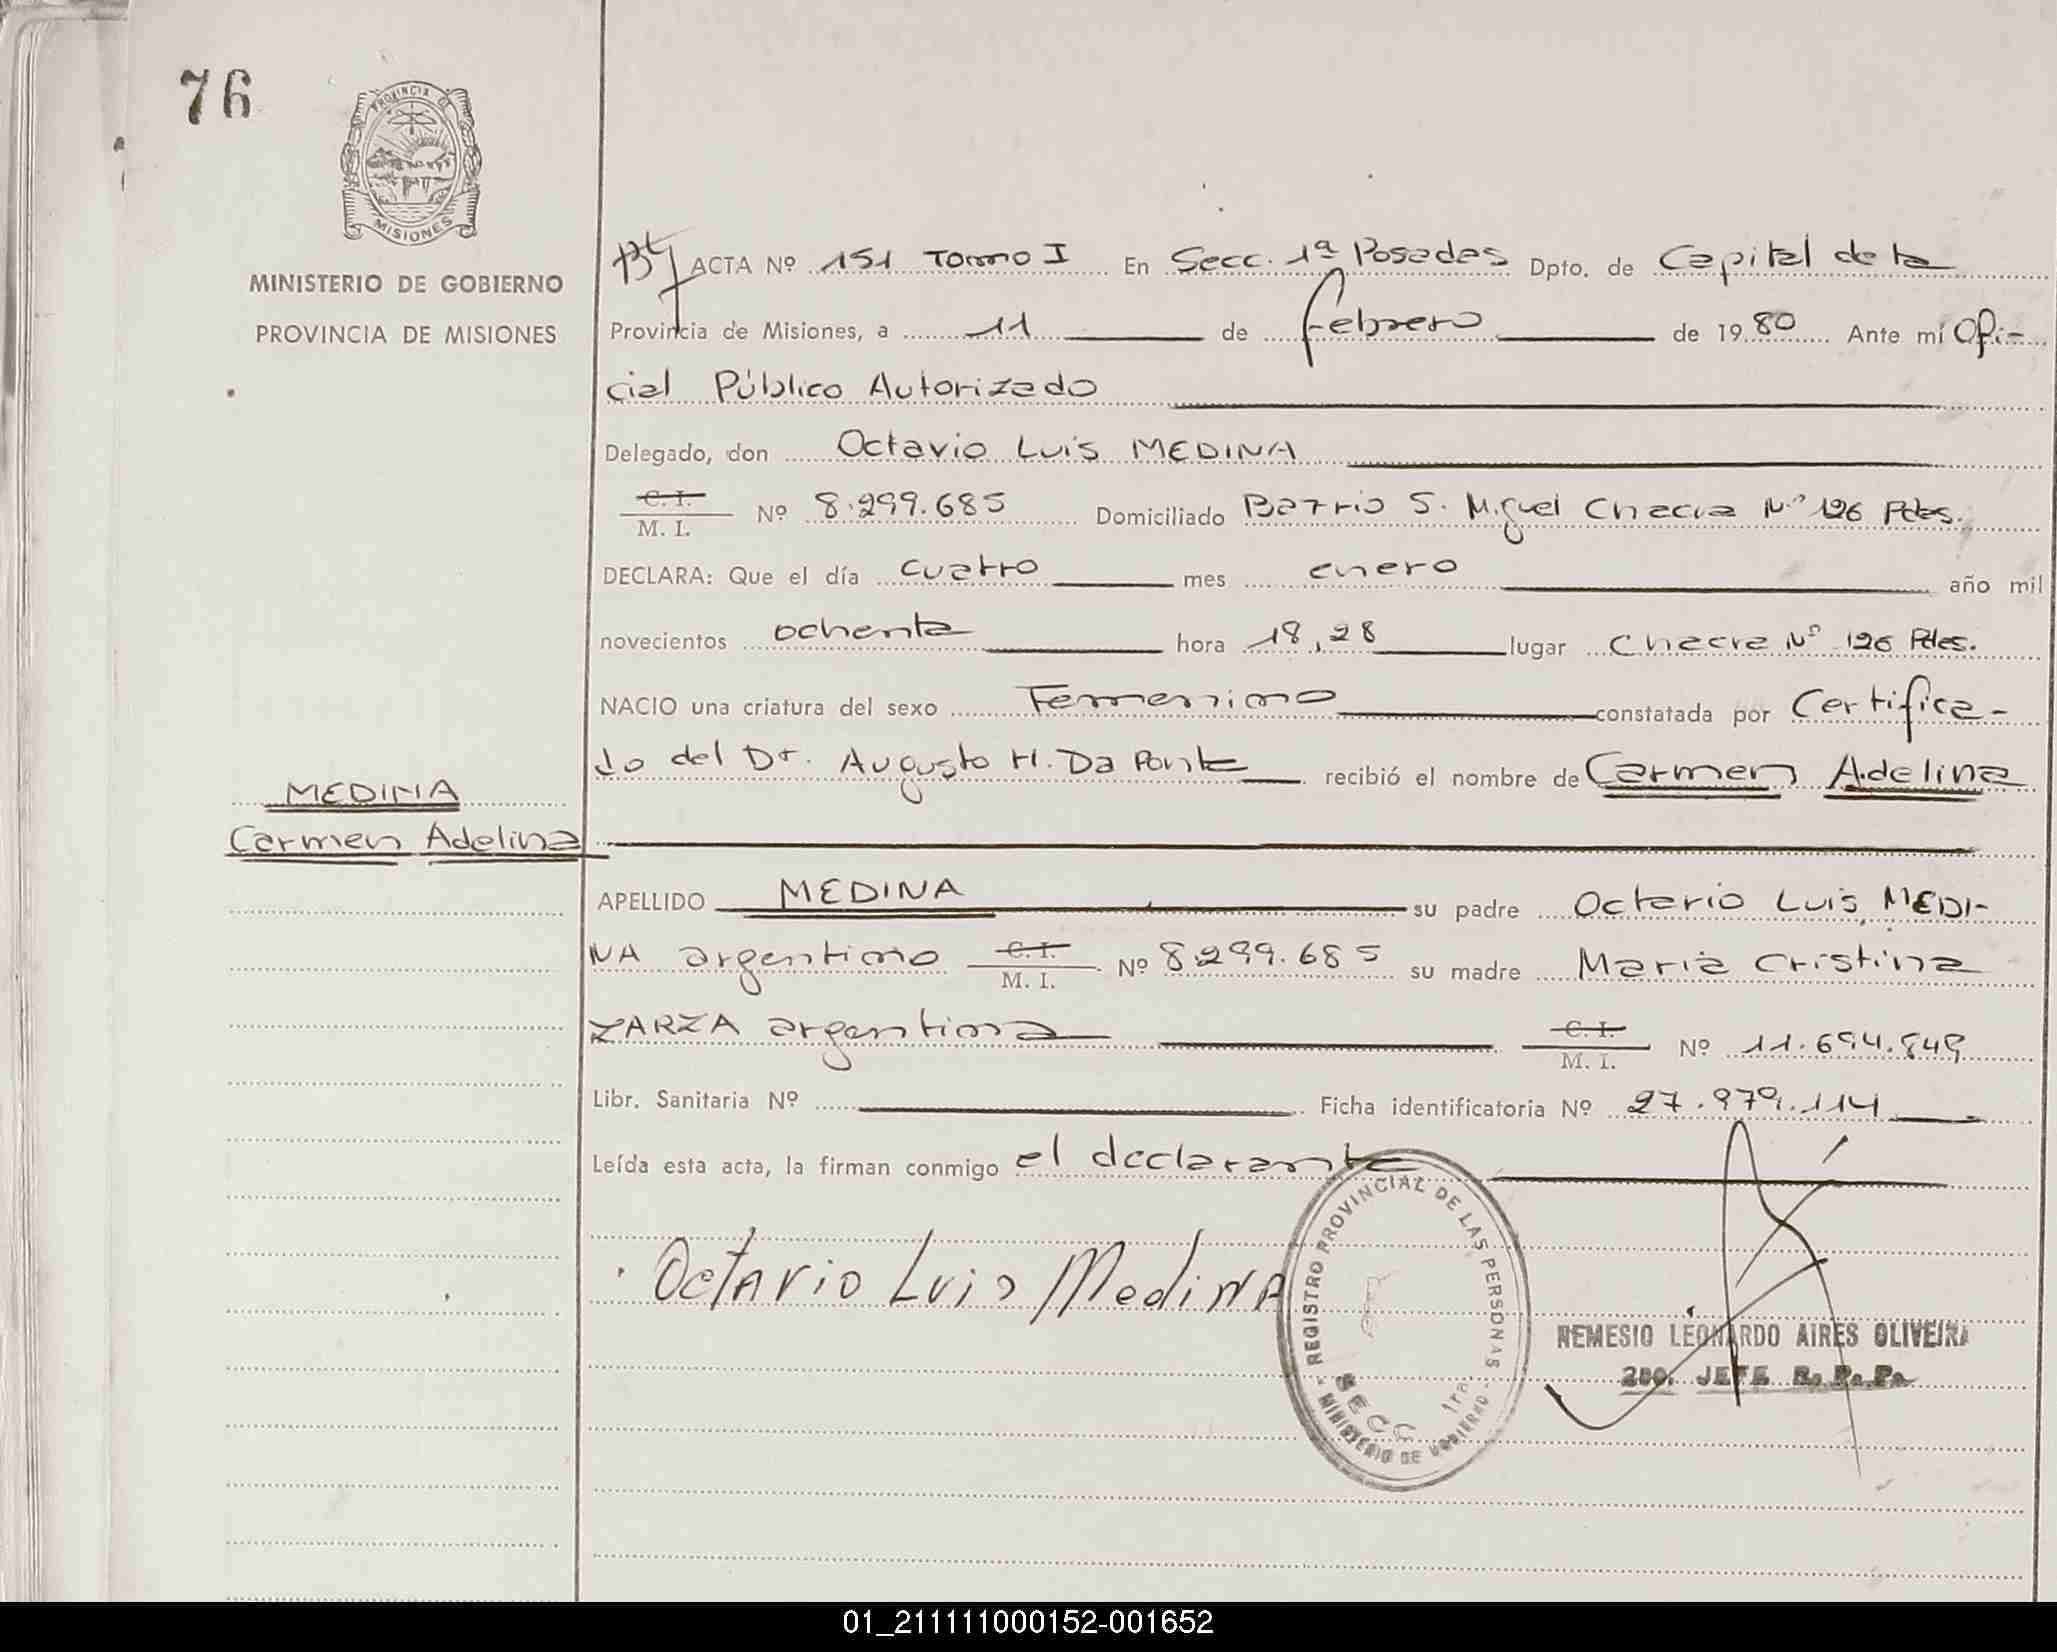 76
PROVINCIA DE
MISIONES
MINISTERIO DE GOBIERNO
PROVINCIA DE MISIONES
ACTA Nº 151 Tomo I En Secc. 1ª Posadas Dpto. de Capital de la
Provincia de Misiones, a 11 de febrero de 1980 Ante mí Ofi-
cial Público Autorizado
Delegado, don Octavio Luis MEDINA
C. I.
M. I. Nº 8.299.685 Domiciliado Barrio S. Miguel Chacra Nº 126 Pdas.
DECLARA: Que el día cuatro mes enero año mil
novecientos ochenta hora 18,28 lugar Chacra Nº 126 Pdas.
NACIO una criatura del sexo Femenino constatada por Certifica-
do del Dr. Augusto H. Da Ponte recibió el nombre de Carmen Adelina
MEDINA
Carmen Adelina
APELLIDO MEDINA su padre Octavio Luis MEDI-
NA argentino C. I. M. I. Nº 8.299.685 su madre María Cristina
ZARZA argentina C. I. M. I. Nº 11.694.849
Libr. Sanitaria Nº Ficha identificatoria Nº 27.979.114
Leída esta acta, la firman conmigo el declarante
Octavio Luis Medina
REGISTRO PROVINCIAL DE LAS PERSONAS
SECC 1ra
MINISTERIO DE GOBIERNO
REMESIO LEONARDO AIRES OLIVEIRA
2do. JEFE R. P. P.
01_211111000152-001652